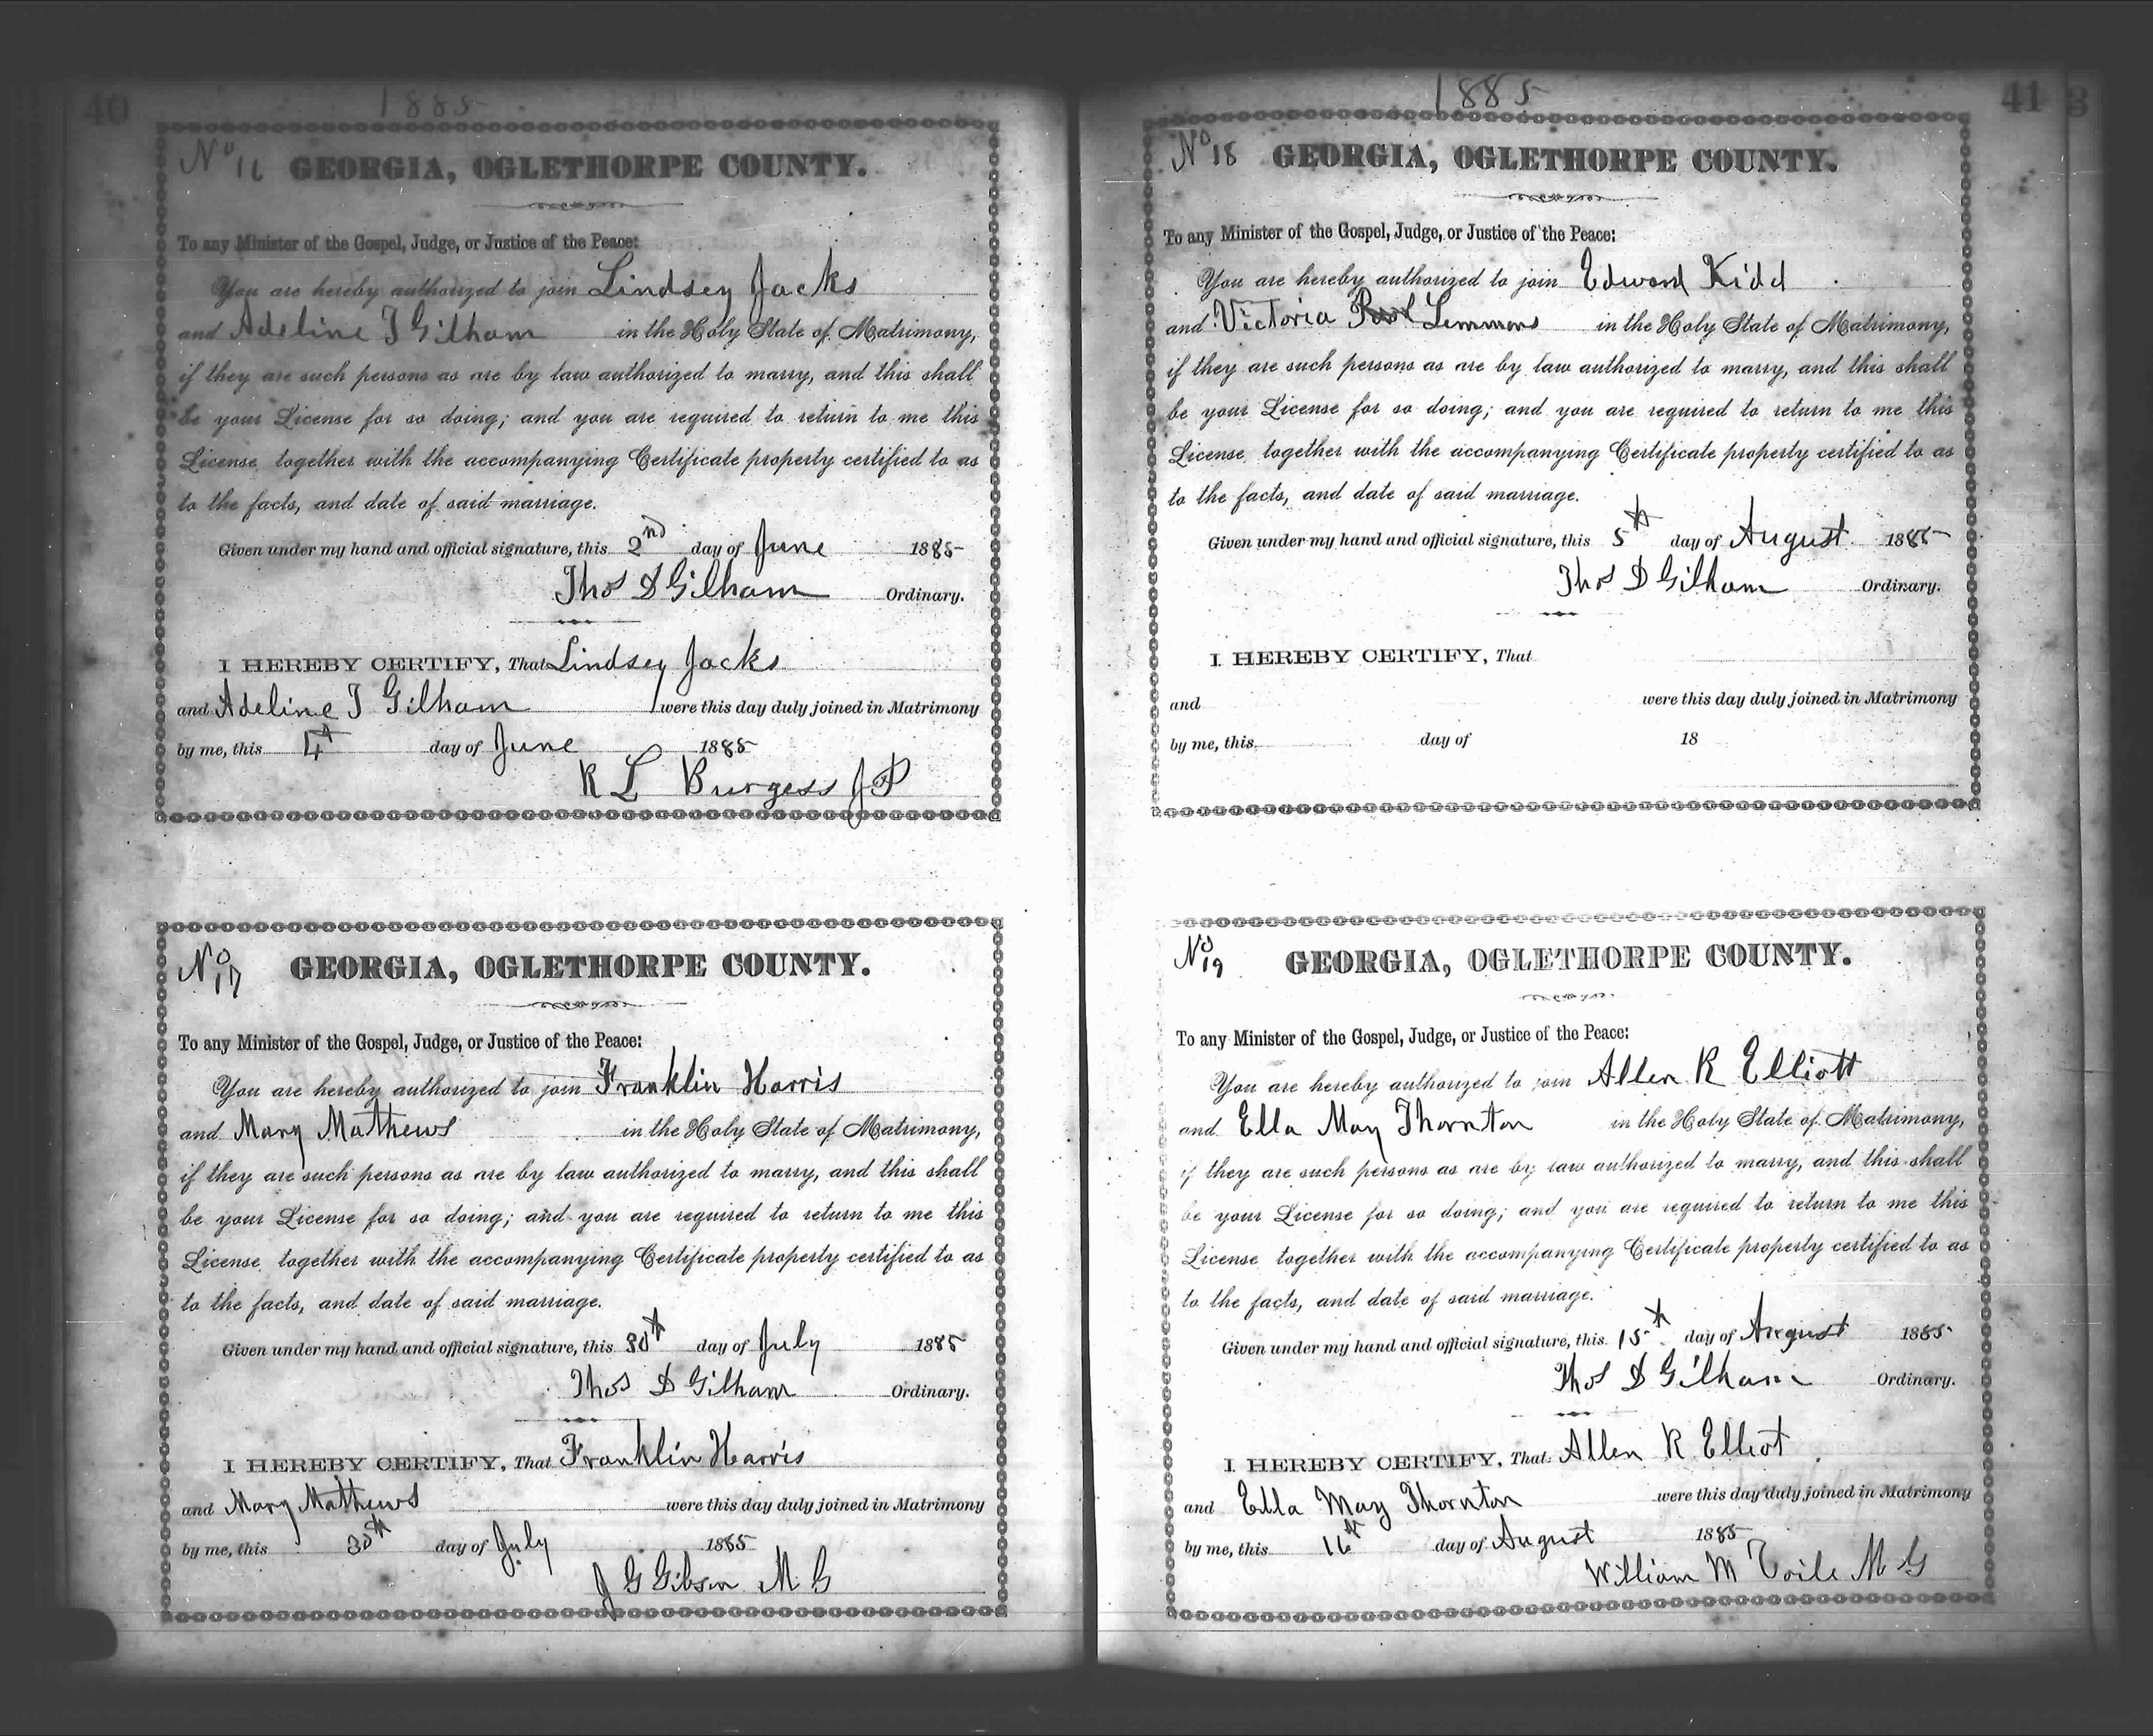 40
1885
No 16 GEORGIA, OGLETHORPE COUNTY.
To any Minister of the Gospel, Judge, or Justice of the Peace:
You are hereby authorized to join Lindsey Jacks
and Adeline T Gilham in the Holy State of Matrimony,
if they are such persons as are by law authorized to marry, and this shall
be your License for so doing; and you are required to return to me this
License together with the accompanying Certificate property certified to as
to the facts, and date of said marriage.
Given under my hand and official signature, this 2nd day of June 1885
Thos D Gilham Ordinary.
I HEREBY CERTIFY, That Lindsey Jacks
and Adeline T Gilham were this day duly joined in Matrimony
by me, this 4th day of June 1885
R L Burgess J P
No 17 GEORGIA, OGLETHORPE COUNTY.
To any Minister of the Gospel, Judge, or Justice of the Peace:
You are hereby authorized to join Franklin Harris
and Mary Mathews in the Holy State of Matrimony,
if they are such persons as are by law authorized to marry, and this shall
be your License for so doing; and you are required to return to me this
License together with the accompanying Certificate property certified to as
to the facts, and date of said marriage.
Given under my hand and official signature, this 30th day of July 1885
Thos D Gilham Ordinary.
I HEREBY CERTIFY, That Franklin Harris
and Mary Mathews were this day duly joined in Matrimony
by me, this 30th day of July 1885
J G Gibson M G
1885
41
3
No 18 GEORGIA, OGLETHORPE COUNTY.
To any Minister of the Gospel, Judge, or Justice of the Peace:
You are hereby authorized to join Edward Kidd
and Victoria Lemmons in the Holy State of Matrimony,
if they are such persons as are by law authorized to marry, and this shall
be your License for so doing; and you are required to return to me this
License together with the accompanying Certificate property certified to as
to the facts, and date of said marriage.
Given under my hand and official signature, this 5th day of August 1885
Thos D Gilham Ordinary.
I HEREBY CERTIFY, That
and were this day duly joined in Matrimony
by me, this day of 18
No 19 GEORGIA, OGLETHORPE COUNTY.
To any Minister of the Gospel, Judge, or Justice of the Peace:
You are hereby authorized to join Allen R Elliott
and Ella May Thornton in the Holy State of Matrimony,
if they are such persons as are by law authorized to marry, and this shall
be your License for so doing; and you are required to return to me this
License together with the accompanying Certificate property certified to as
to the facts, and date of said marriage.
Given under my hand and official signature, this 15th day of August 1885
Thos D Gilham Ordinary.
I HEREBY CERTIFY, That Allen R Elliot
and Ella May Thornton were this day duly joined in Matrimony
by me, this 16th day of August 1885
William M Coile M G